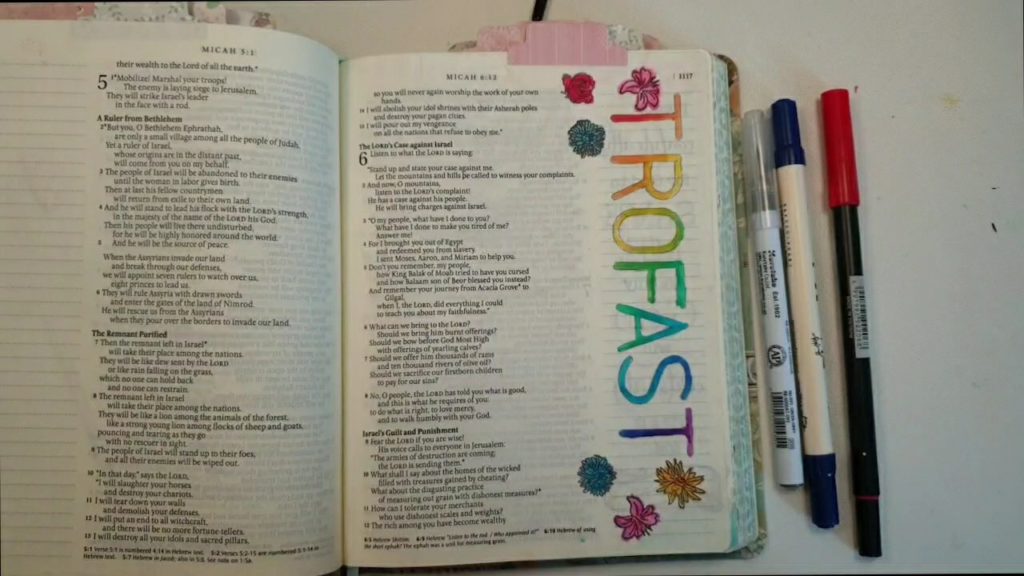 MICAH 5:1
their wealth to the Lord of all the earth.*
5 1*Mobilize! Marshal your troops!
The enemy is laying siege to Jerusalem.
They will strike Israel's leader
in the face with a rod.
A Ruler from Bethlehem
2*But you, O Bethlehem Ephrathah,
are only a small village among all the people of Judah.
Yet a ruler of Israel,
whose origins are in the distant past,
will come from you on my behalf.
3 The people of Israel will be abandoned to their enemies
until the woman in labor gives birth.
Then at last his fellow countrymen
will return from exile to their own land.
4 And he will stand to lead his flock with the LORD's strength,
in the majesty of the name of the LORD his God.
Then his people will live there undisturbed,
for he will be highly honored around the world.
5 And he will be the source of peace.
When the Assyrians invade our land
and break through our defenses,
we will appoint seven rulers to watch over us,
eight princes to lead us.
6 They will rule Assyria with drawn swords
and enter the gates of the land of Nimrod.
He will rescue us from the Assyrians
when they pour over the borders to invade our land.
The Remnant Purified
7 Then the remnant left in Israel*
will take their place among the nations.
They will be like dew sent by the LORD
or like rain falling on the grass,
which no one can hold back
and no one can restrain.
8 The remnant left in Israel
will take their place among the nations.
They will be like a lion among the animals of the forest,
like a strong young lion among flocks of sheep and goats,
pouncing and tearing as they go
with no rescuer in sight.
9 The people of Israel will stand up to their foes,
and all their enemies will be wiped out.
10 "In that day," says the LORD,
"I will slaughter your horses
and destroy your chariots.
11 I will tear down your walls
and demolish your defenses.
12 I will put an end to all witchcraft,
and there will be no more fortune-tellers.
13 I will destroy all your idols and sacred pillars,
5:1 Verse 5:1 is numbered 4:14 in Hebrew text. 5:2 Verses 5:2-15 are numbered 5:1-14 in
Hebrew text. 5:7 Hebrew in Jacob; also in 5:8. See note on 1:5a.
MICAH 6:12
1117
so you will never again worship the work of your own
hands.
14 I will abolish your idol shrines with their Asherah poles
and destroy your pagan cities.
15 I will pour out my vengeance
on all the nations that refuse to obey me."
The LORD's Case against Israel
6 Listen to what the LORD is saying:
"Stand up and state your case against me.
Let the mountains and hills be called to witness your complaints.
2 And now, O mountains,
listen to the LORD's complaint!
He has a case against his people.
He will bring charges against Israel.
3 "O my people, what have I done to you?
What have I done to make you tired of me?
Answer me!
4 For I brought you out of Egypt
and redeemed you from slavery.
I sent Moses, Aaron, and Miriam to help you.
5 Don't you remember, my people,
how King Balak of Moab tried to have you cursed
and how Balaam son of Beor blessed you instead?
And remember your journey from Acacia Grove* to
Gilgal,
when I, the LORD, did everything I could
to teach you about my faithfulness."
6 What can we bring to the LORD?
Should we bring him burnt offerings?
Should we bow before God Most High
with offerings of yearling calves?
7 Should we offer him thousands of rams
and ten thousand rivers of olive oil?
Should we sacrifice our firstborn children
to pay for our sins?
8 No, O people, the LORD has told you what is good,
and this is what he requires of you:
to do what is right, to love mercy,
and to walk humbly with your God.
Israel's Guilt and Punishment
9 Fear the LORD if you are wise!
His voice calls to everyone in Jerusalem:
"The armies of destruction are coming;
the LORD is sending them.*
10 What shall I say about the homes of the wicked
filled with treasures gained by cheating?
What about the disgusting practice
of measuring out grain with dishonest measures?*
11 How can I tolerate your merchants
who use dishonest scales and weights?
12 The rich among you have become wealthy
6:5 Hebrew Shittim. 6:9 Hebrew "Listen to the rod. / Who appointed it?" 6:10 Hebrew of using
the short ephah? The ephah was a unit for measuring grain.
TROFAST